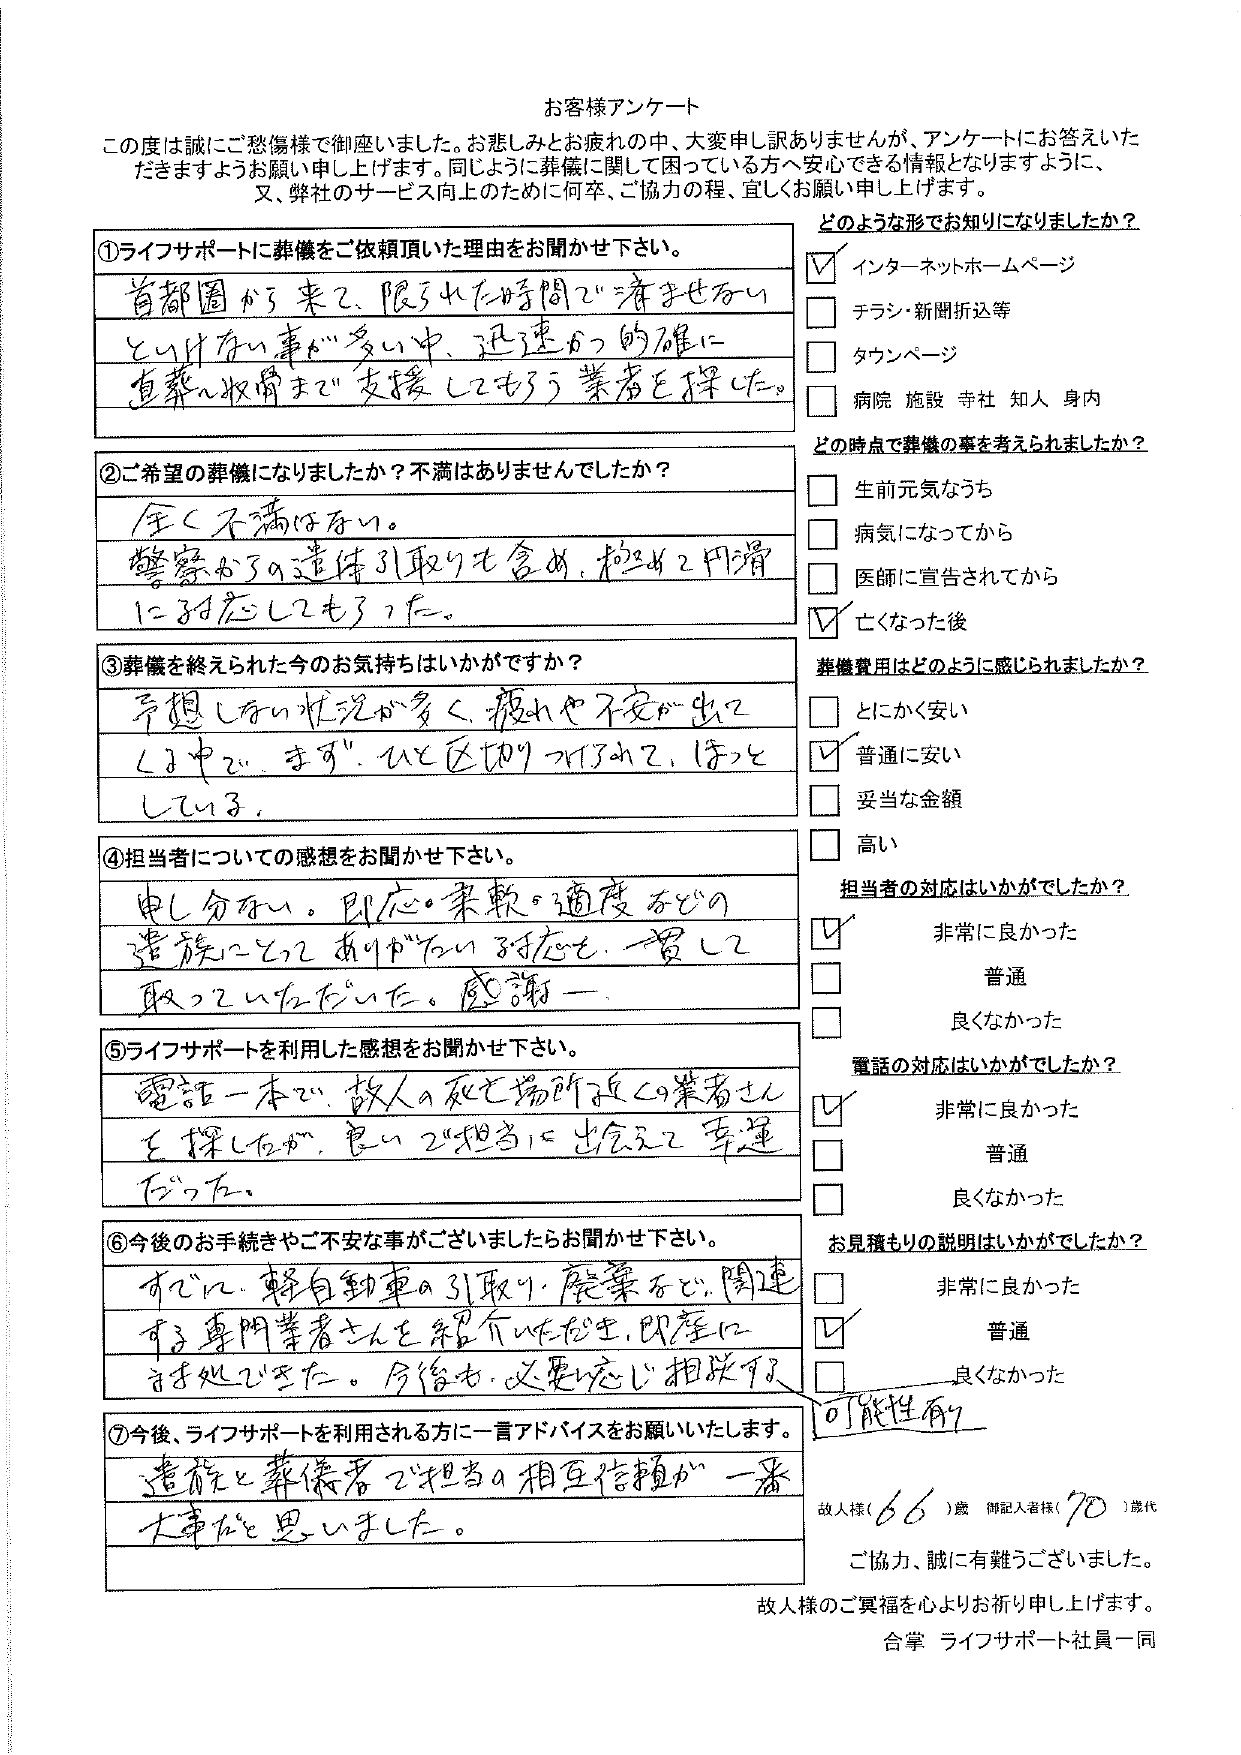 お客様アンケート
この度は誠にご愁傷様で御座いました。お悲しみとお疲れの中、大変申し訳ありませんが、アンケートにお答えいた
だきますようお願い申し上げます。同じように葬儀に関して困っている方へ安心できる情報となりますように、
又、弊社のサービス向上のために何卒、ご協力の程、宜しくお願い申し上げます。
①ライフサポートに葬儀をご依頼頂いた理由をお聞かせ下さい。
首都圏から来て、限られた時間で済ませない
といけない事が多い中、迅速かつ的確に
直葬〜収骨まで支援してもらう業者を探した。
②ご希望の葬儀になりましたか？不満はありませんでしたか？
全く不満はない。
警察からの遺体引取りも含め、極めて円滑
に対応してもらった。
③葬儀を終えられた今のお気持ちはいかがですか？
予想しない状況が多く、疲れや不安が出て
くる中で、まず、ひと区切りつけられて、ほっと
している。
④担当者についての感想をお聞かせ下さい。
申し分ない。即応・柔軟・適度などの
遺族にとってありがたい対応を、一貫して
取っていただいた。感謝ー
⑤ライフサポートを利用した感想をお聞かせ下さい。
電話一本で、故人の死亡場所近くの業者さん
を探したが、良いご担当に出会えて幸運
だった。
⑥今後のお手続きやご不安な事がございましたらお聞かせ下さい。
すでに、軽自動車の引取り・廃棄など、関連
する専門業者さんを紹介いただき、即座に
対処できた。今後も、必要に応じ相談する
可能性有り
⑦今後、ライフサポートを利用される方に一言アドバイスをお願いいたします。
遺族と葬儀者ご担当の相互信頼が一番
大事だと思いました。
どのような形でお知りになりましたか？
インターネットホームページ
チラシ・新聞折込等
タウンページ
病院 施設 寺社 知人 身内
どの時点で葬儀の事を考えられましたか？
生前元気なうち
病気になってから
医師に宣告されてから
亡くなった後
葬儀費用はどのように感じられましたか？
とにかく安い
普通に安い
妥当な金額
高い
担当者の対応はいかがでしたか？
非常に良かった
普通
良くなかった
電話の対応はいかがでしたか？
非常に良かった
普通
良くなかった
お見積もりの説明はいかがでしたか？
非常に良かった
普通
良くなかった
故人様（66）歳 御記入者様（70）歳代
ご協力、誠に有難うございました。
故人様のご冥福を心よりお祈り申し上げます。
合掌 ライフサポート社員一同